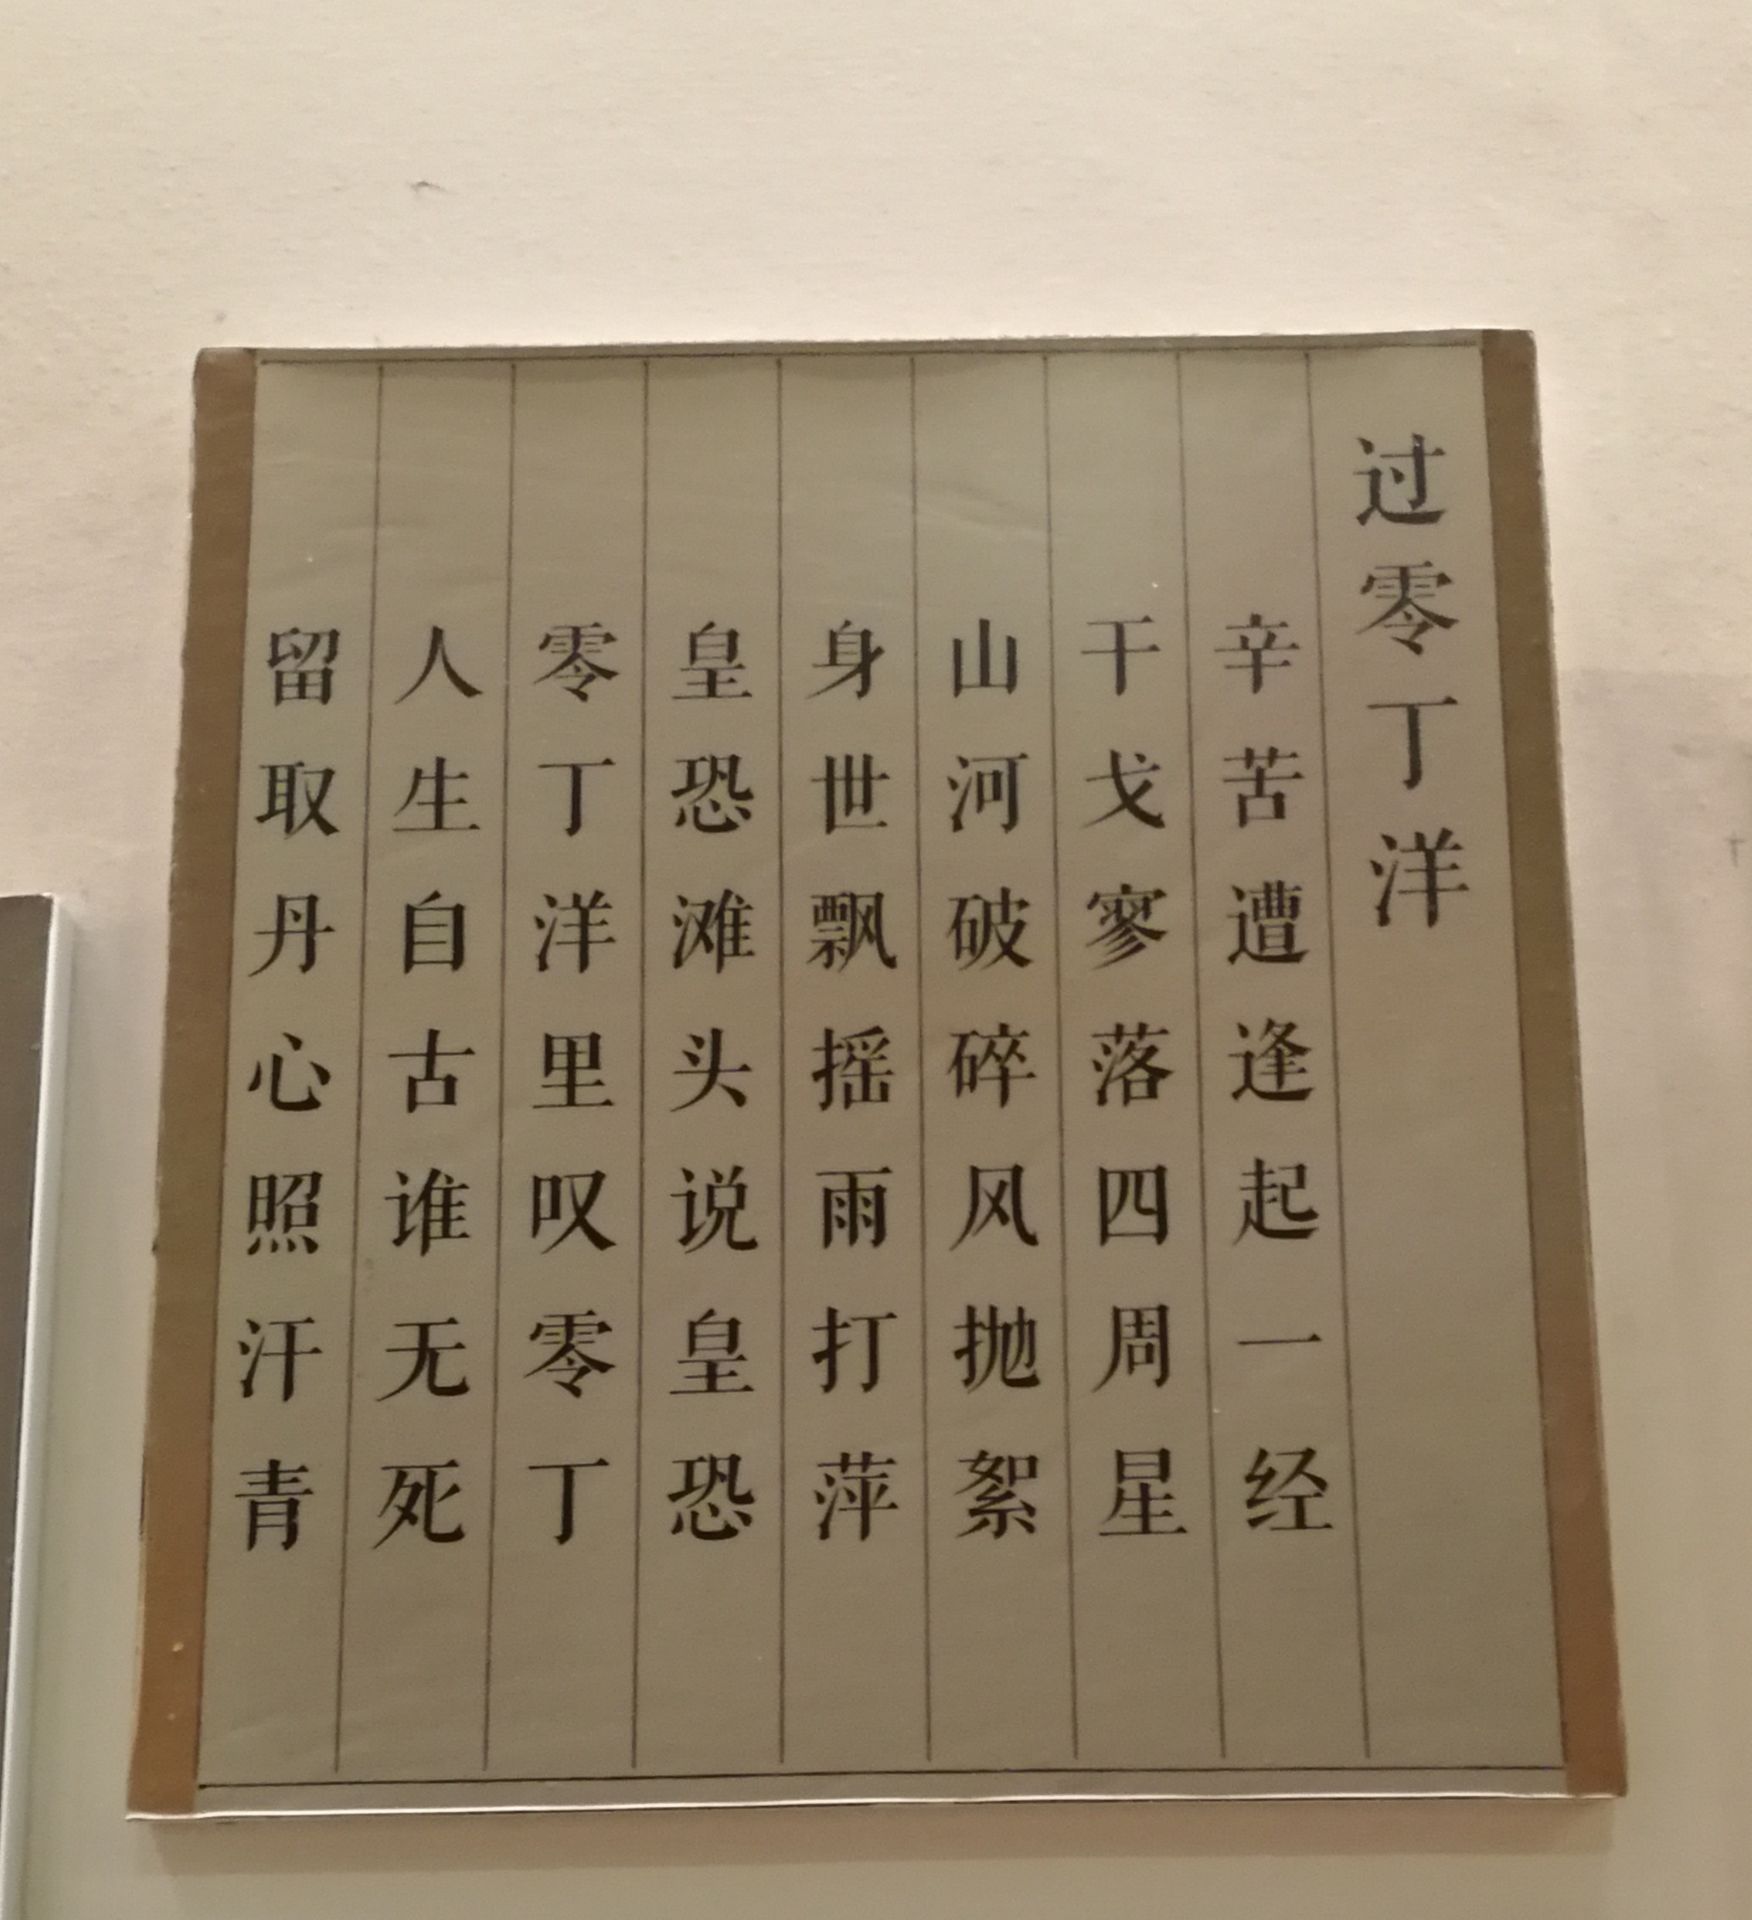 过零丁洋
辛苦遭逢起一经
干戈寥落四周星
山河破碎风抛絮
身世飘摇雨打萍
皇恐滩头说皇恐
零丁洋里叹零丁
人生自古谁无死
留取丹心照汗青